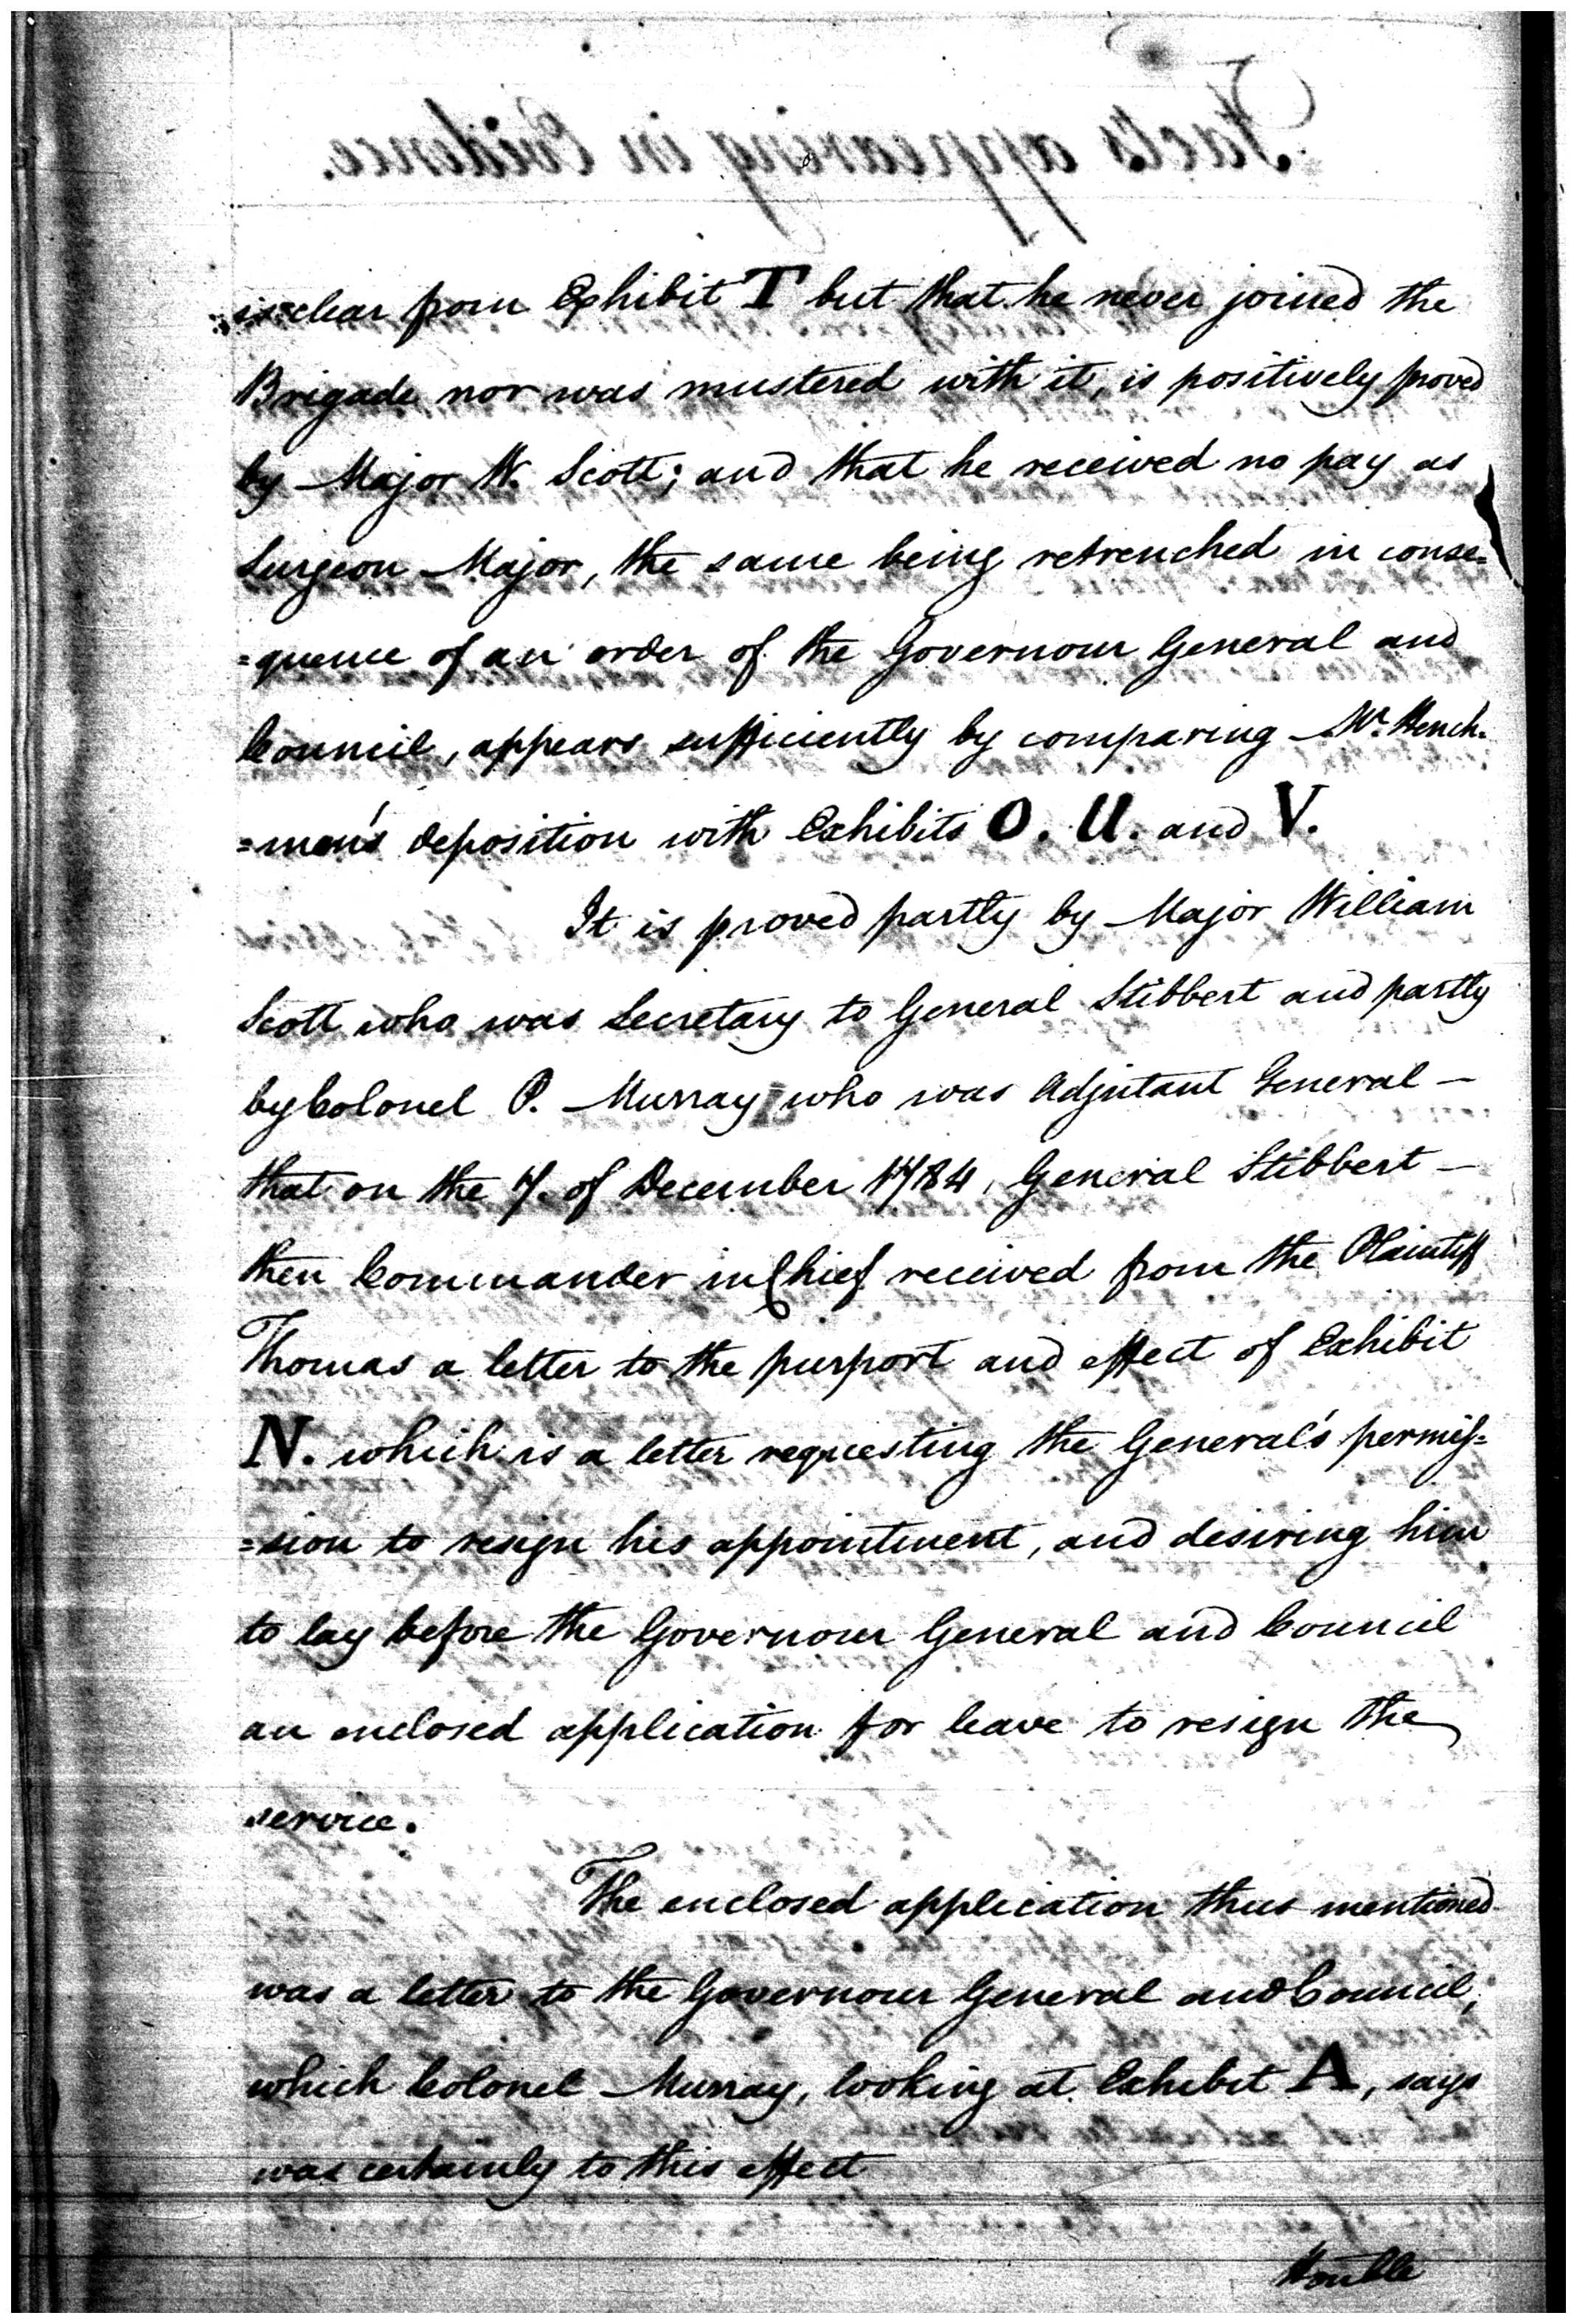 is clear from Exhibit T but that he never joined the
Brigade nor was mustered with it, is positively proved
by Major W. Scott; and that he received no pay as
Surgeon Major, the same being retrenched in conse=
=quence of an order of the Governour General and
Council, appears sufficiently by comparing Mr. Hench=
=man's deposition with Exhibits O. U. and V.
It is proved partly by Major William
Scott who was Secretary to General Stibbert and partly
by Colonel P. Murray who was Adjutant General —
that on the 7. of December 1784, General Stibbert —
then Commander in Chief received from the Plaintiff
Thomas a letter to the purport and effect of Exhibit
N. which is a letter requesting the General's permis=
=sion to resign his appointment, and desiring him
to lay before the Governour General and Council
an enclosed application for leave to resign the
service.
The enclosed application thus mentioned
was a letter to the Governour General and Council,
which Colonel Murray, looking at Exhibit A, says
was certainly to this effect
Honble